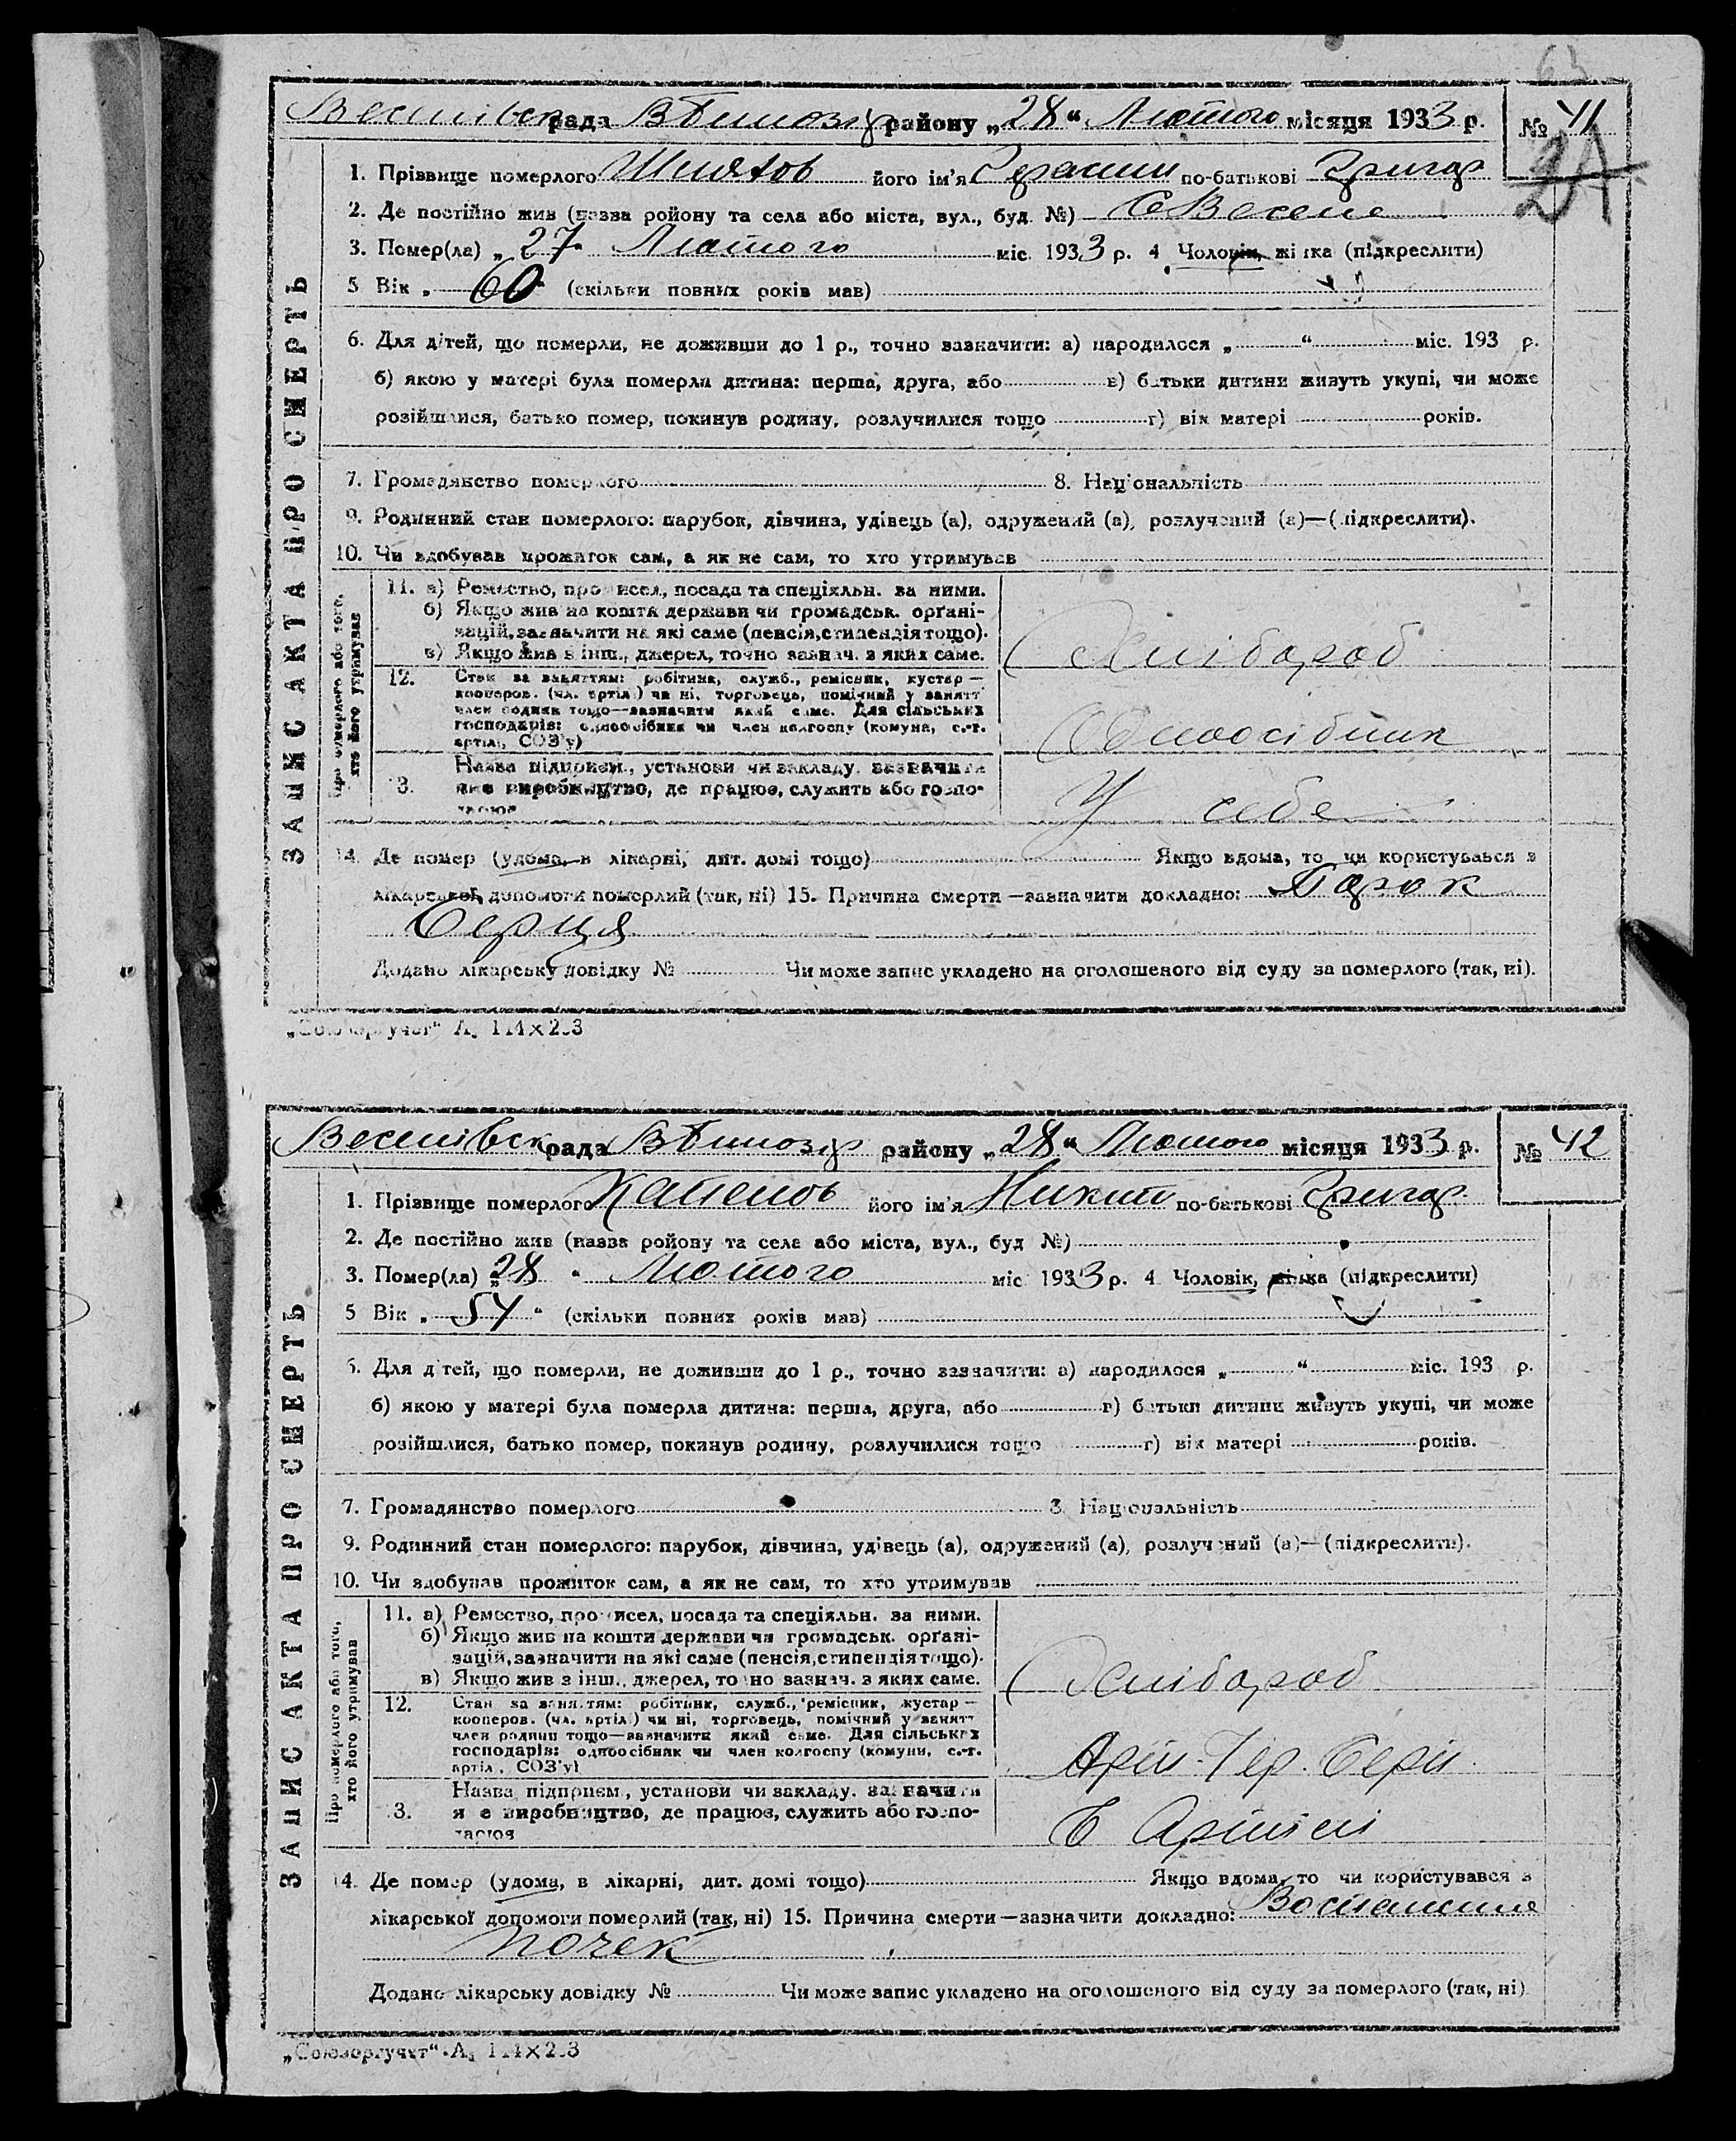 63
Веселівск рада В Білозір району „28“ Лютого місяця 1933 р. № 41
2А
1. Прізвище померлого його ім'я Герасим по-батькові Григор
2. Де постійно жив (назва ройону та села або міста, вул., буд. №) С Веселе
3. Помер(ла) „27“ Лютого міс. 1933 р. 4 Чоловік, жінка (підкреслити)
5 Вік „60“ (скільки повних років мав)
6. Для дітей, що померли, не доживши до 1 р., точно зазначити: а) народилося „ “ міс. 193 р.
б) якою у матері була померла дитина: перша, друга, або в) батьки дитини живуть укупі, чи може
розійшлися, батько помер, покинув родину, розлучилися тощо г) вік матері років.
7. Громадянство померлого 8. Національність
9. Родинний стан померлого: парубок, дівчина, удівець (а), одружений (а), розлучений (а)—(підкреслити).
10. Чи здобував прожиток сам, а як не сам, то хто утримував
ЗАПИС АКТА ПРО СМЕРТЬ
Про померлого або того,
хто його утримував
11. а) Ремество, промисел, посада та спеціяльн. за ними.
б) Якщо жив на кошти держави чи громадськ. орґані-
зацій, зазначити на які саме (пенсія, стипендія тощо).
в) Якщо жив з інш., джерел, точно зазнач. з яких саме. Хлібороб
12. Стан за заняттям: робітник, служб., ремісник, кустар—
кооперов. (чл. артілі) чи ні, торговець, помічний у занятт
член родини тощо—зазначити який саме. Для сільських
господарів: одноосібник чи член колгоспу (комуна, с.-г.
артіль, СОЗ'у) Одноосібник
Назва підприєм., установи чи закладу, зазначити
3. яке виробництво, де працює, служить або госпо-
дарює У себе
14. Де помер (удома, в лікарні, дит. домі тощо) Якщо вдома, то чи користувався з
лікарської допомоги померлий (так, ні) 15. Причина смерти—зазначити докладно: Порок
Серця
Додано лікарську довідку № Чи може запис укладено на оголошеного від суду за померлого (так, ні).
„Союзоргучет“ А
Веселівск рада В Білозір району „28“ Лютого місяця 1933 р. № 42
1. Прізвище померлого його ім'я Никит по-батькові Григор
2. Де постійно жив (назва ройону та села або міста, вул., буд №)
3. Помер(ла) „28“ Лютого міс 1933 р. 4. Чоловік, жінка (підкреслити)
5 Вік „54“ (скільки повних років мав)
6. Для дітей, що померли, не доживши до 1 р., точно зазначити: а) народилося „ “ міс. 193 р.
б) якою у матері була померла дитина: перша, друга, або в) батьки дитини живуть укупі, чи може
розійшлися, батько помер, покинув родину, розлучилися тощо г) вік матері років.
7. Громадянство померлого 8. Національність
9. Родинний стан померлого: парубок, дівчина, удівець (а), одружений (а), розлучений (а)—(підкреслити).
10. Чи здобував прожиток сам, а як не сам, то хто утримував
ЗАПИС АКТА ПРО СМЕРТЬ
Про померлого або того,
хто його утримував
11. а) Ремество, промисел, посада та спеціяльн. за ними.
б) Якщо жив на кошти держави чи громадськ. орґані-
зацій, зазначити на які саме (пенсія, стипендія тощо).
в) Якщо жив з інш., джерел, точно зазнач. з яких саме. Хлібороб
12. Стан за заняттям: робітник, служб., ремісник, кустар—
кооперов. (чл. артілі) чи ні, торговець, помічний у занятт
член родини тощо—зазначити який саме. Для сільських
господарів: одноосібник чи член колгоспу (комуни, с.-г.
артіл., СОЗ'у)
Назва підприєм., установи чи закладу, зазначити
3. яке виробництво, де працює, служить або госпо-
дарює В Артілі
14. Де помер (удома, в лікарні, дит. домі тощо) Якщо вдома, то чи користувався з
лікарської допомоги померлий (так, ні) 15. Причина смерти—зазначити докладно: Воспаление
почек
Додано лікарську довідку № Чи може запис укладено на оголошеного від суду за померлого (так, ні)
„Союзоргучет“ А